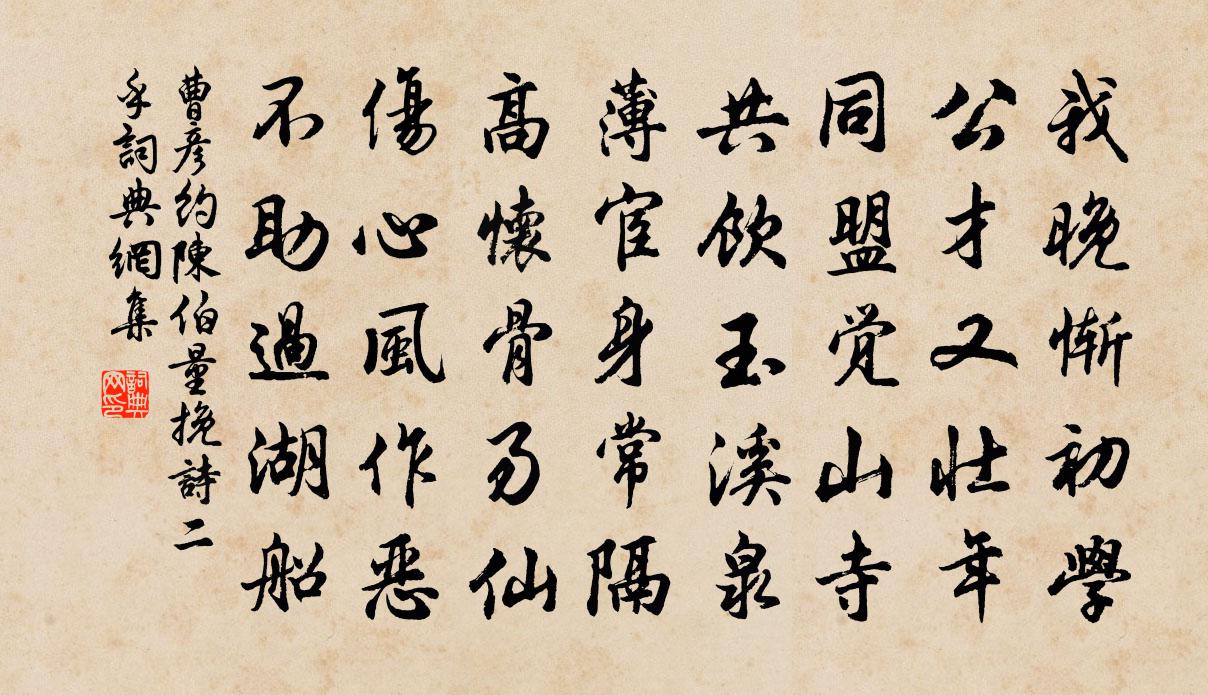 我晚慚初學
公才又壯年
同盟覺山寺
共飲玉溪泉
薄宦身常隔
高懷骨乃仙
傷心風作惡
不助過湖船
曹彥約陳伯量挽詩二
首詞典網集
詞典网印